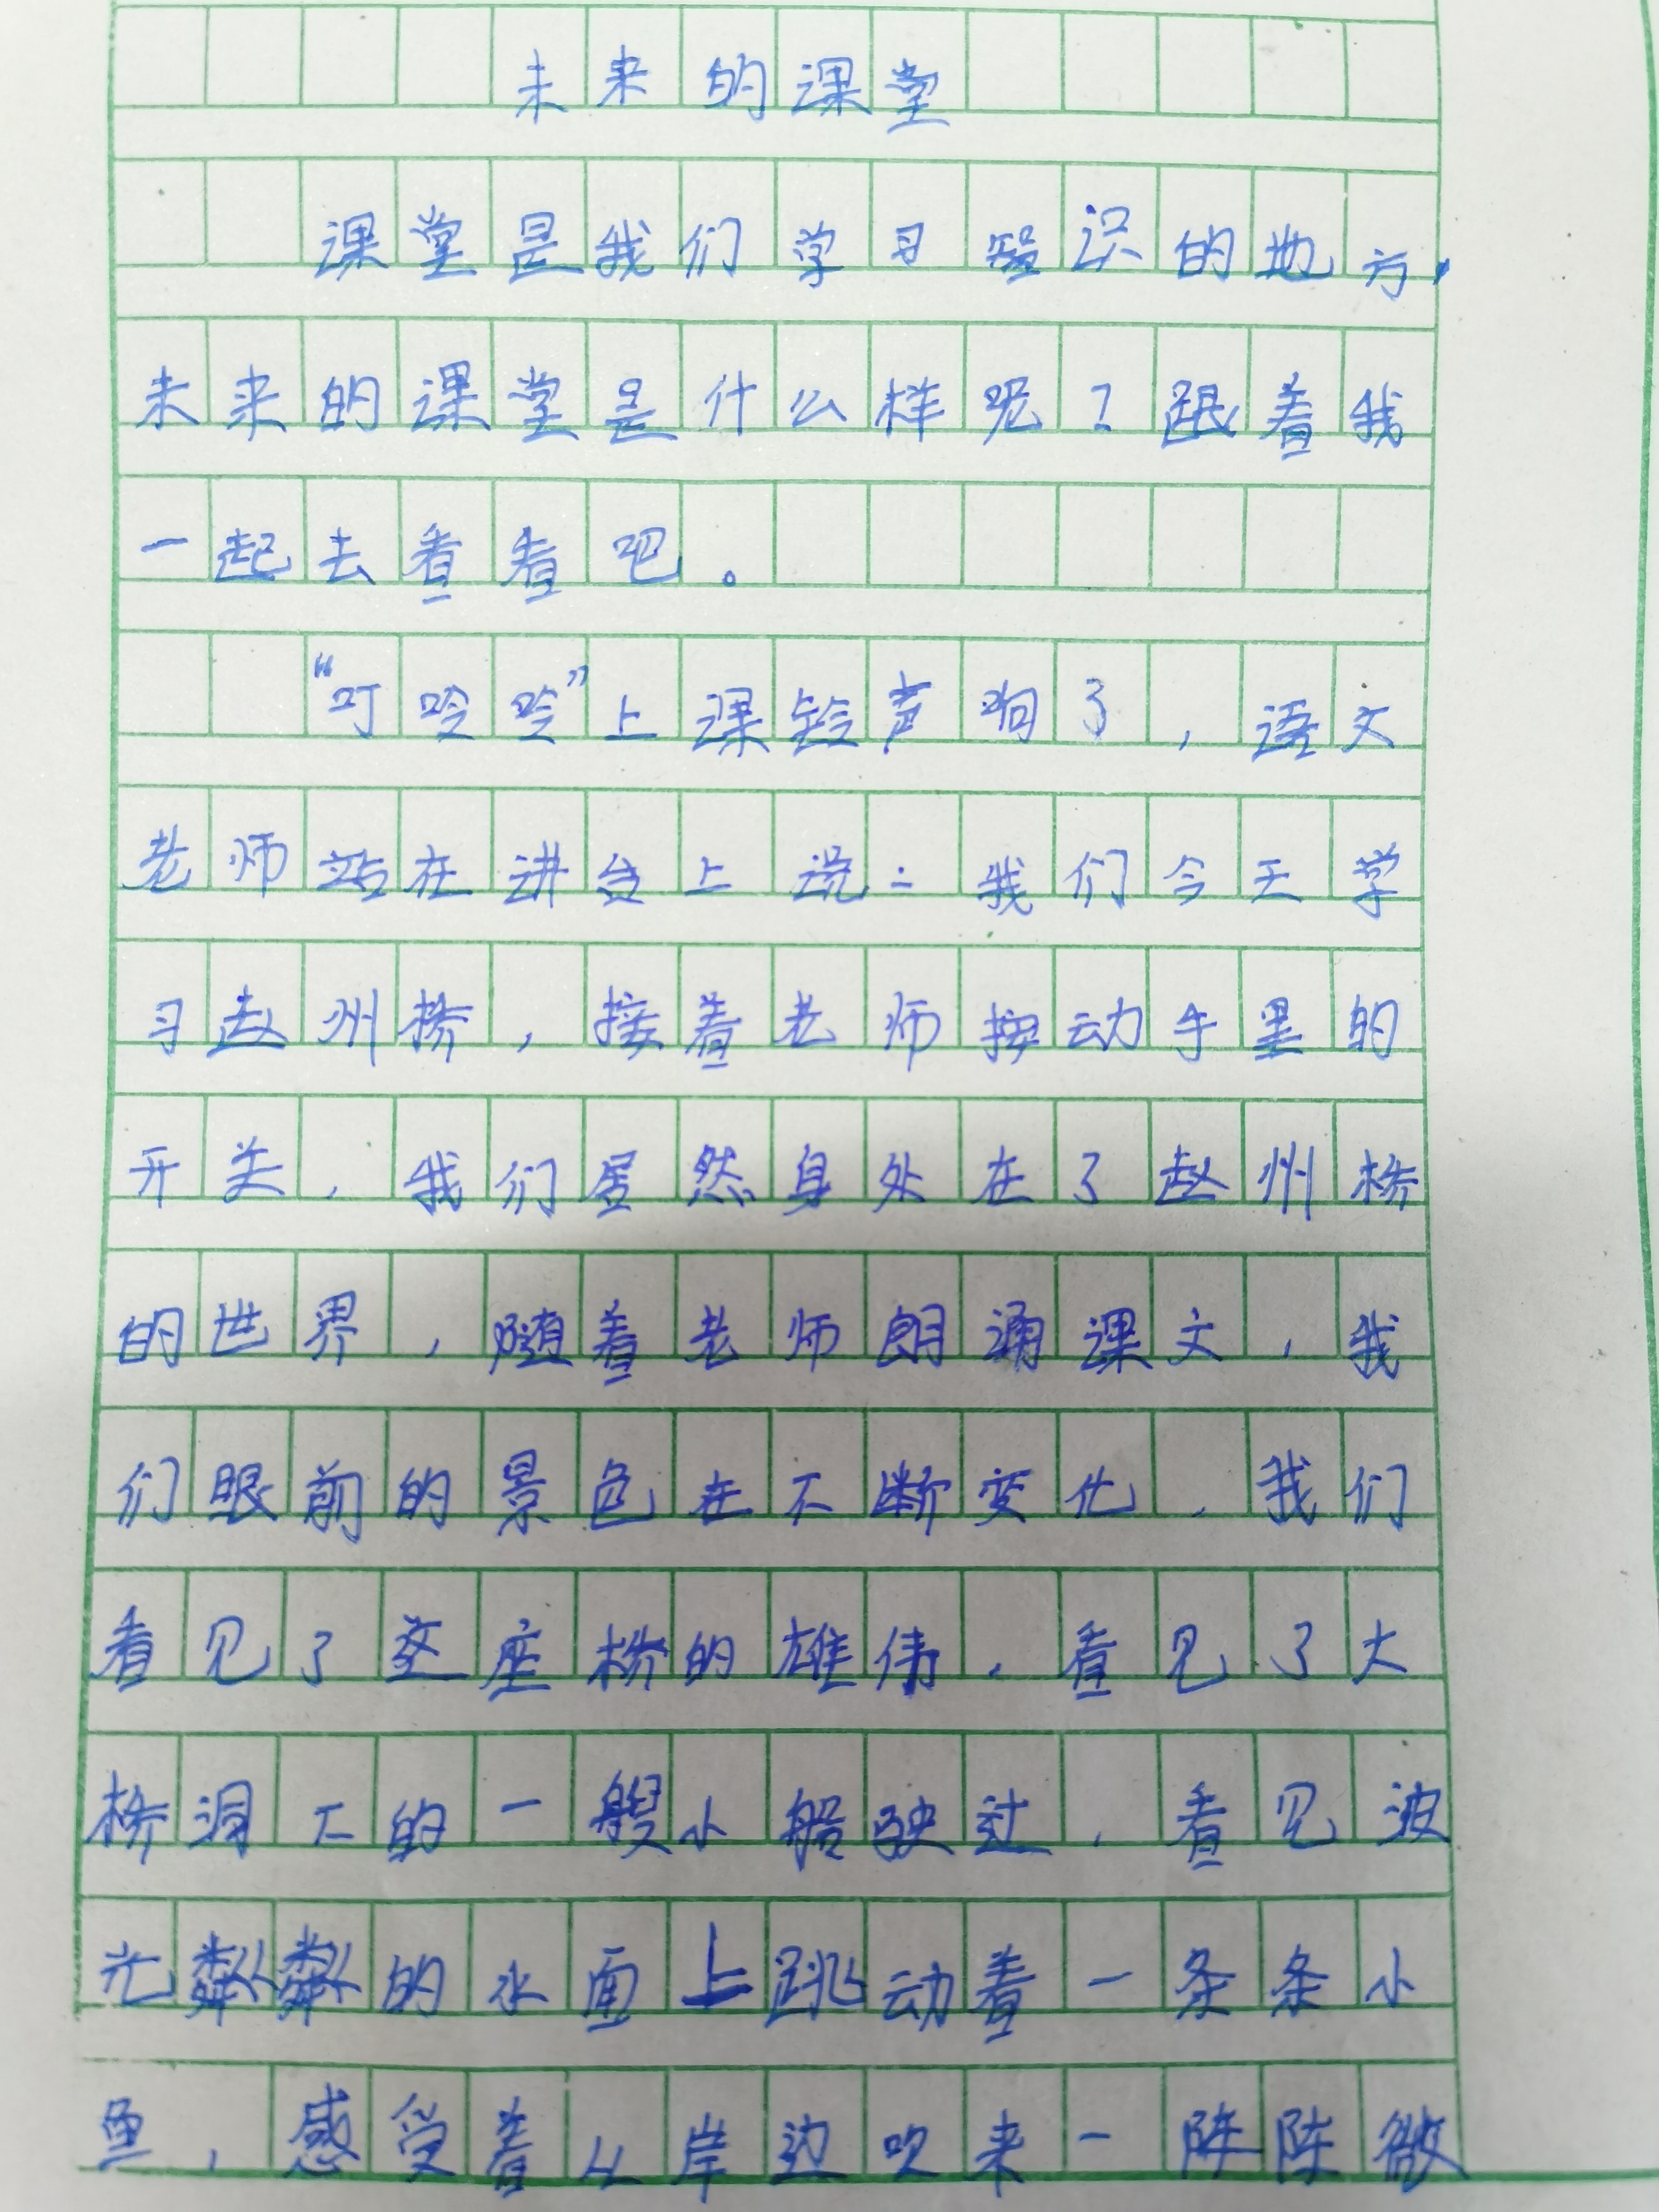 未来的课堂
课堂是我们学习知识的地方，
未来的课堂是什么样呢？跟着我
一起去看看吧。
“叮呤呤”上课铃声响了，语文
老师站在讲台上说：我们今天学
习赵州桥，接着老师按动手里的
开关，我们居然身处在了赵州桥
的世界，随着老师朗诵课文，我
们眼前的景色在不断变化，我们
看见了这座桥的雄伟，看见了大
桥洞下的一艘小船驶过，看见波
光粼粼的水面上跳动着一条条小
鱼，感受着从岸边吹来一阵阵微